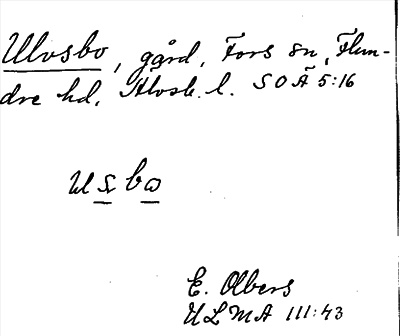 Ulvsbo, gård, Fors sn, Flun-
dre hd, Älvsb. l. SOÄ 5:16
Usbo
E. Olbers
ULMA III:43